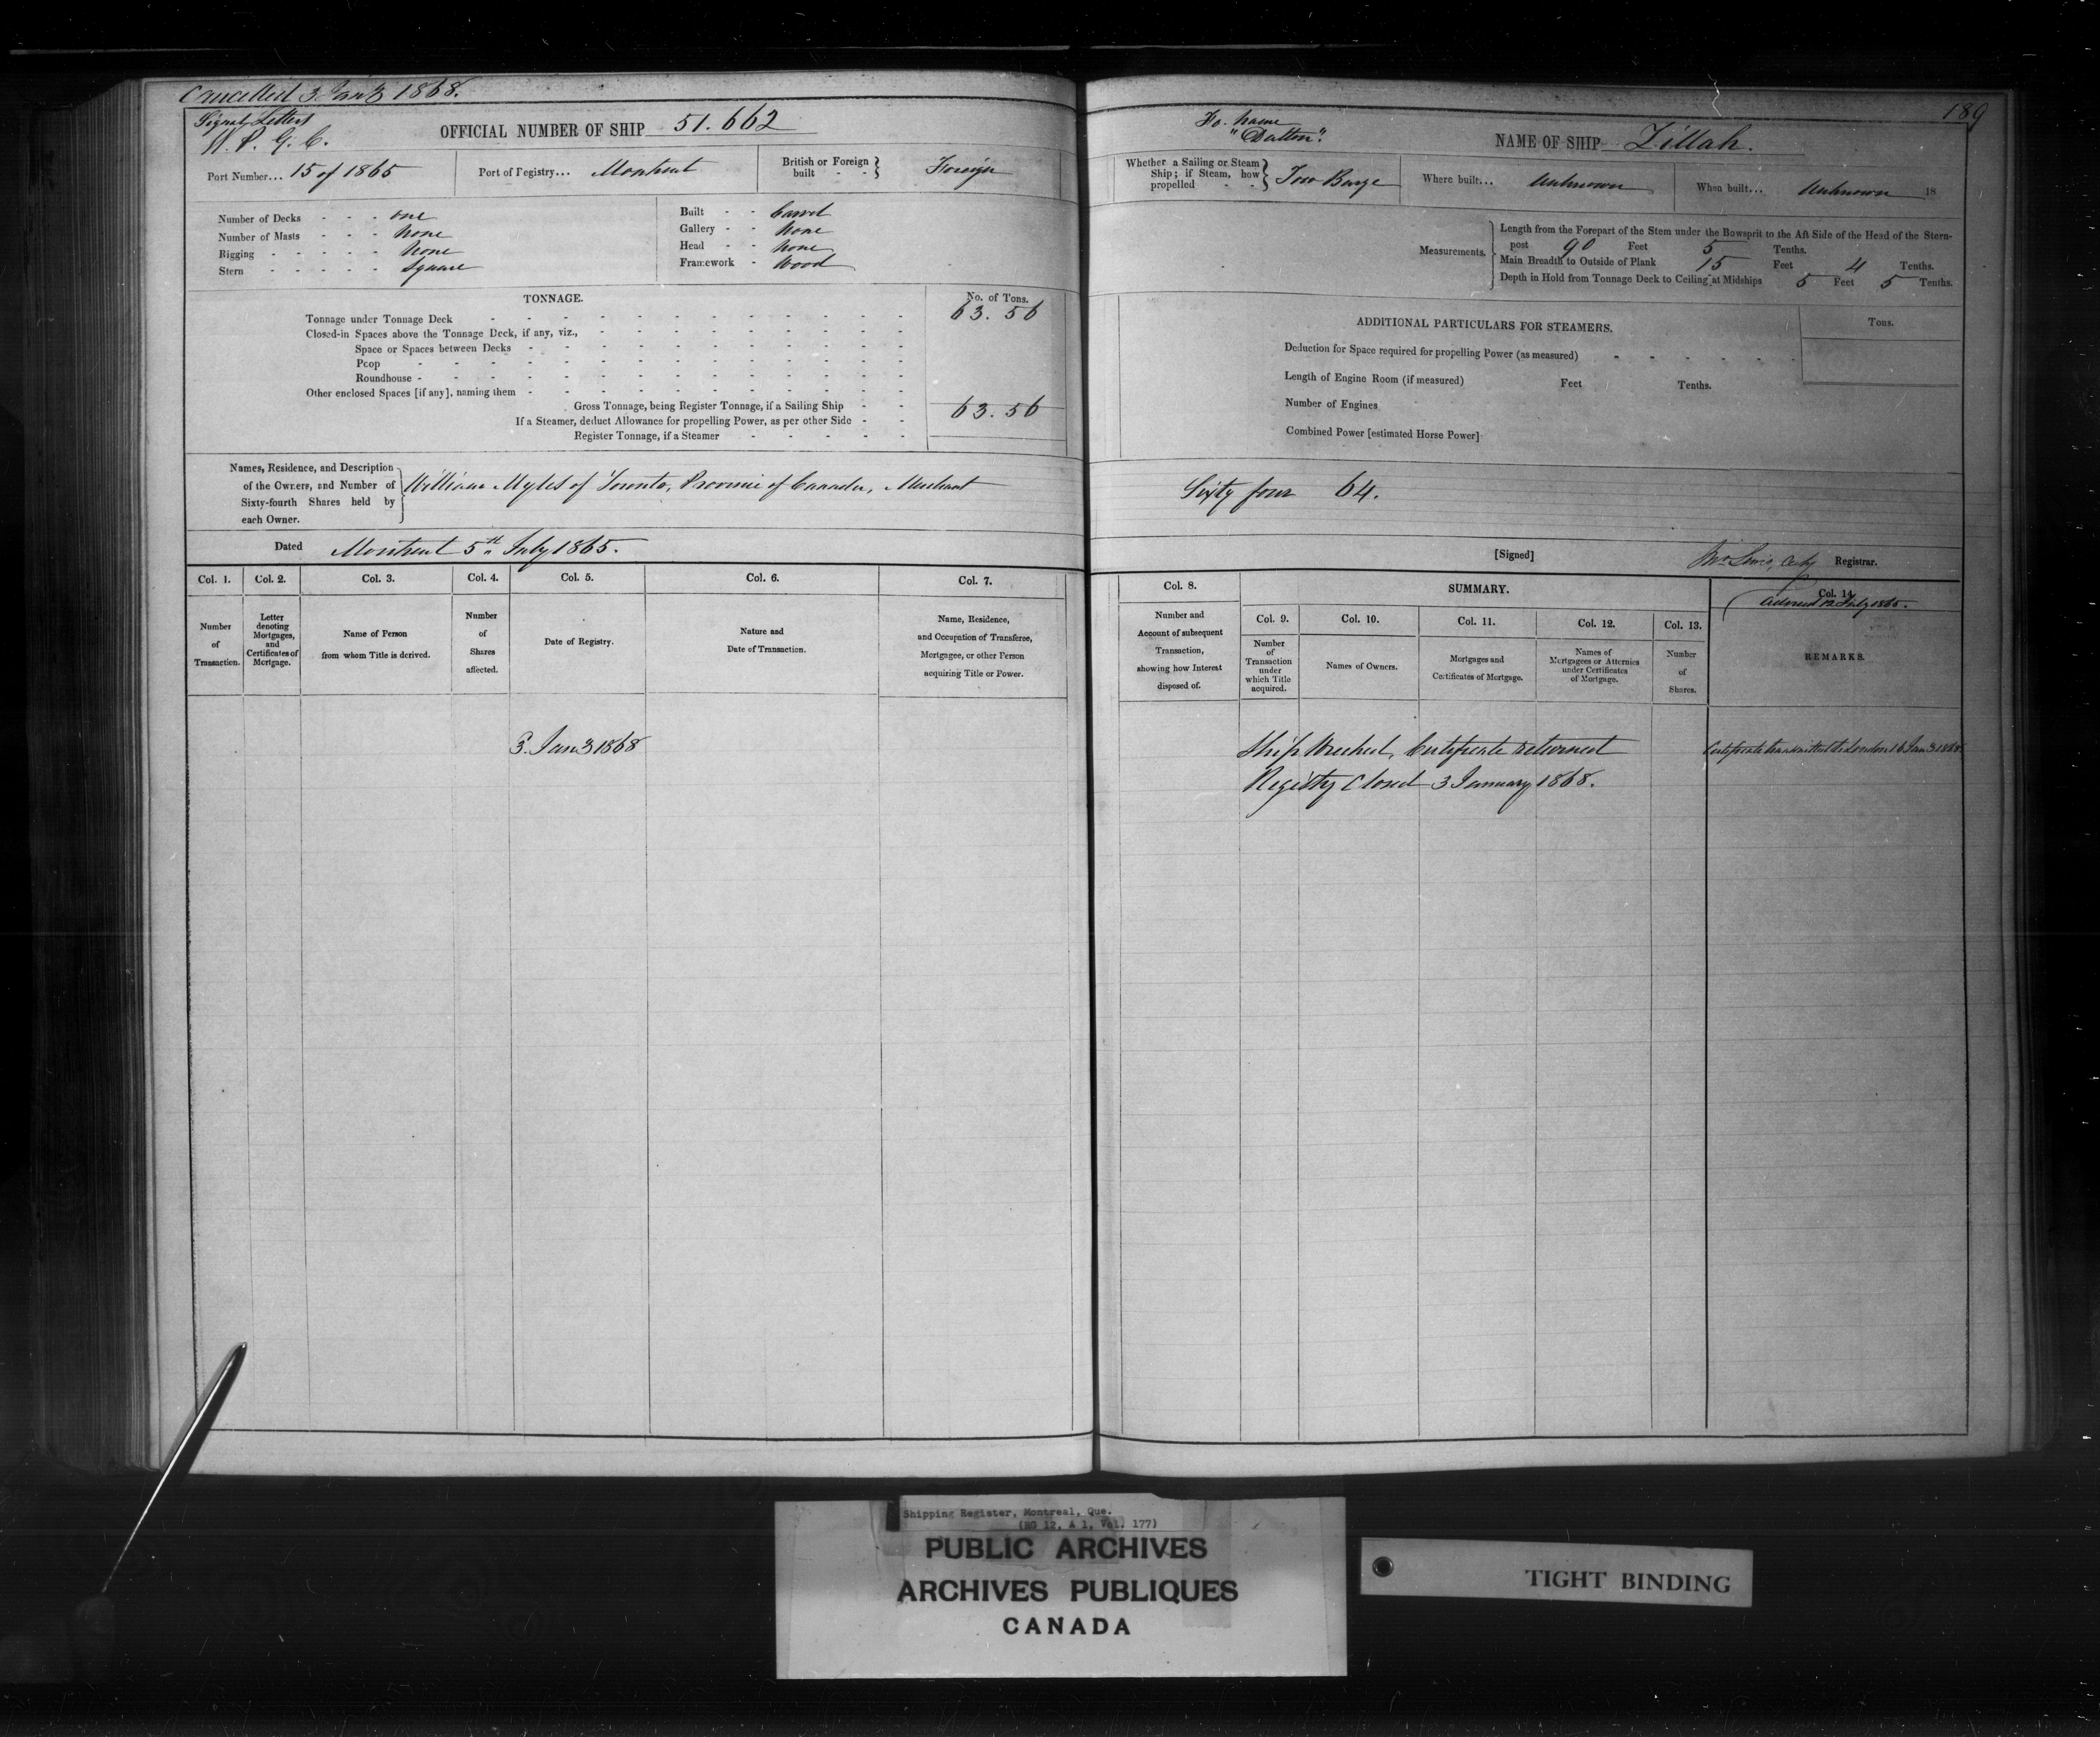 Cancelled 3 Jany 1868.
Signal Letters
W. P. G. C.
OFFICIAL NUMBER OF SHIP 51.662
Port Number... 15 of 1865
Port of Registry... Montreal
British or Foreign built - - } Foreign
Number of Decks - - - one
Number of Masts - - - None
Rigging - - - - - None
Stern - - - - - Square
Built - - Carvel
Gallery - - None
Head - - None
Framework - Wood
TONNAGE.
No. of Tons.
Tonnage under Tonnage Deck 63.56
Closed-in Spaces above the Tonnage Deck, if any, viz.,
Space or Spaces between Decks
Poop
Roundhouse
Other enclosed Spaces [if any], naming them
Gross Tonnage, being Register Tonnage, if a Sailing Ship 63.56
If a Steamer, deduct Allowance for propelling Power, as per other Side
Register Tonnage, if a Steamer
Names, Residence, and Description
of the Owners, and Number of
Sixty-fourth Shares held by
each Owner.
William Myles of Toronto, Province of Canada, Merchant
Dated Montreal 5th July 1865.
Col. 1. Col. 2. Col. 3. Col. 4. Col. 5. Col. 6. Col. 7.
Number of Transaction.
Letter denoting Mortgages, and Certificates of Mortgage.
Name of Person from whom Title is derived.
Number of Shares affected.
Date of Registry.
Nature and Date of Transaction.
Name, Residence, and Occupation of Transferee, Mortgagee, or other Person acquiring Title or Power.
3. Jany 1868
189
Fo. name
"Dalton".
NAME OF SHIP Zillah.
Whether a Sailing or Steam Ship; if Steam, how propelled - - } Tow Barge
Where built... Unknown
When built... Unknown 18
Measurements.
Length from the Forepart of the Stem under the Bowsprit to the Aft Side of the Head of the Stern-
post 90 Feet 5 Tenths.
Main Breadth to Outside of Plank 15 Feet 4 Tenths.
Depth in Hold from Tonnage Deck to Ceiling at Midships 5 Feet 5 Tenths.
ADDITIONAL PARTICULARS FOR STEAMERS.
Tons.
Deduction for Space required for propelling Power (as measured)
Length of Engine Room (if measured) Feet Tenths.
Number of Engines
Combined Power [estimated Horse Power]
Sixty four 64.
[Signed] Registrar.
Col. 8.
Number and Account of subsequent Transaction, showing how Interest disposed of.
SUMMARY.
Col. 9. Col. 10. Col. 11. Col. 12. Col. 13. Col. 14.
July 1865.
Number of Transaction under which Title acquired.
Names of Owners.
Mortgages and Certificates of Mortgage.
Names of Mortgagees or Attornies under Certificates of Mortgage.
Number of Shares.
REMARKS.
Ship Wrecked, Certificate returned
Registry Closed 3 January 1868.
Certificate transmitted to London 16 Jany 1868
Shipping Register, Montreal, Que.
(RG 12, A 1, Vol. 177)
PUBLIC ARCHIVES
ARCHIVES PUBLIQUES
CANADA
TIGHT BINDING